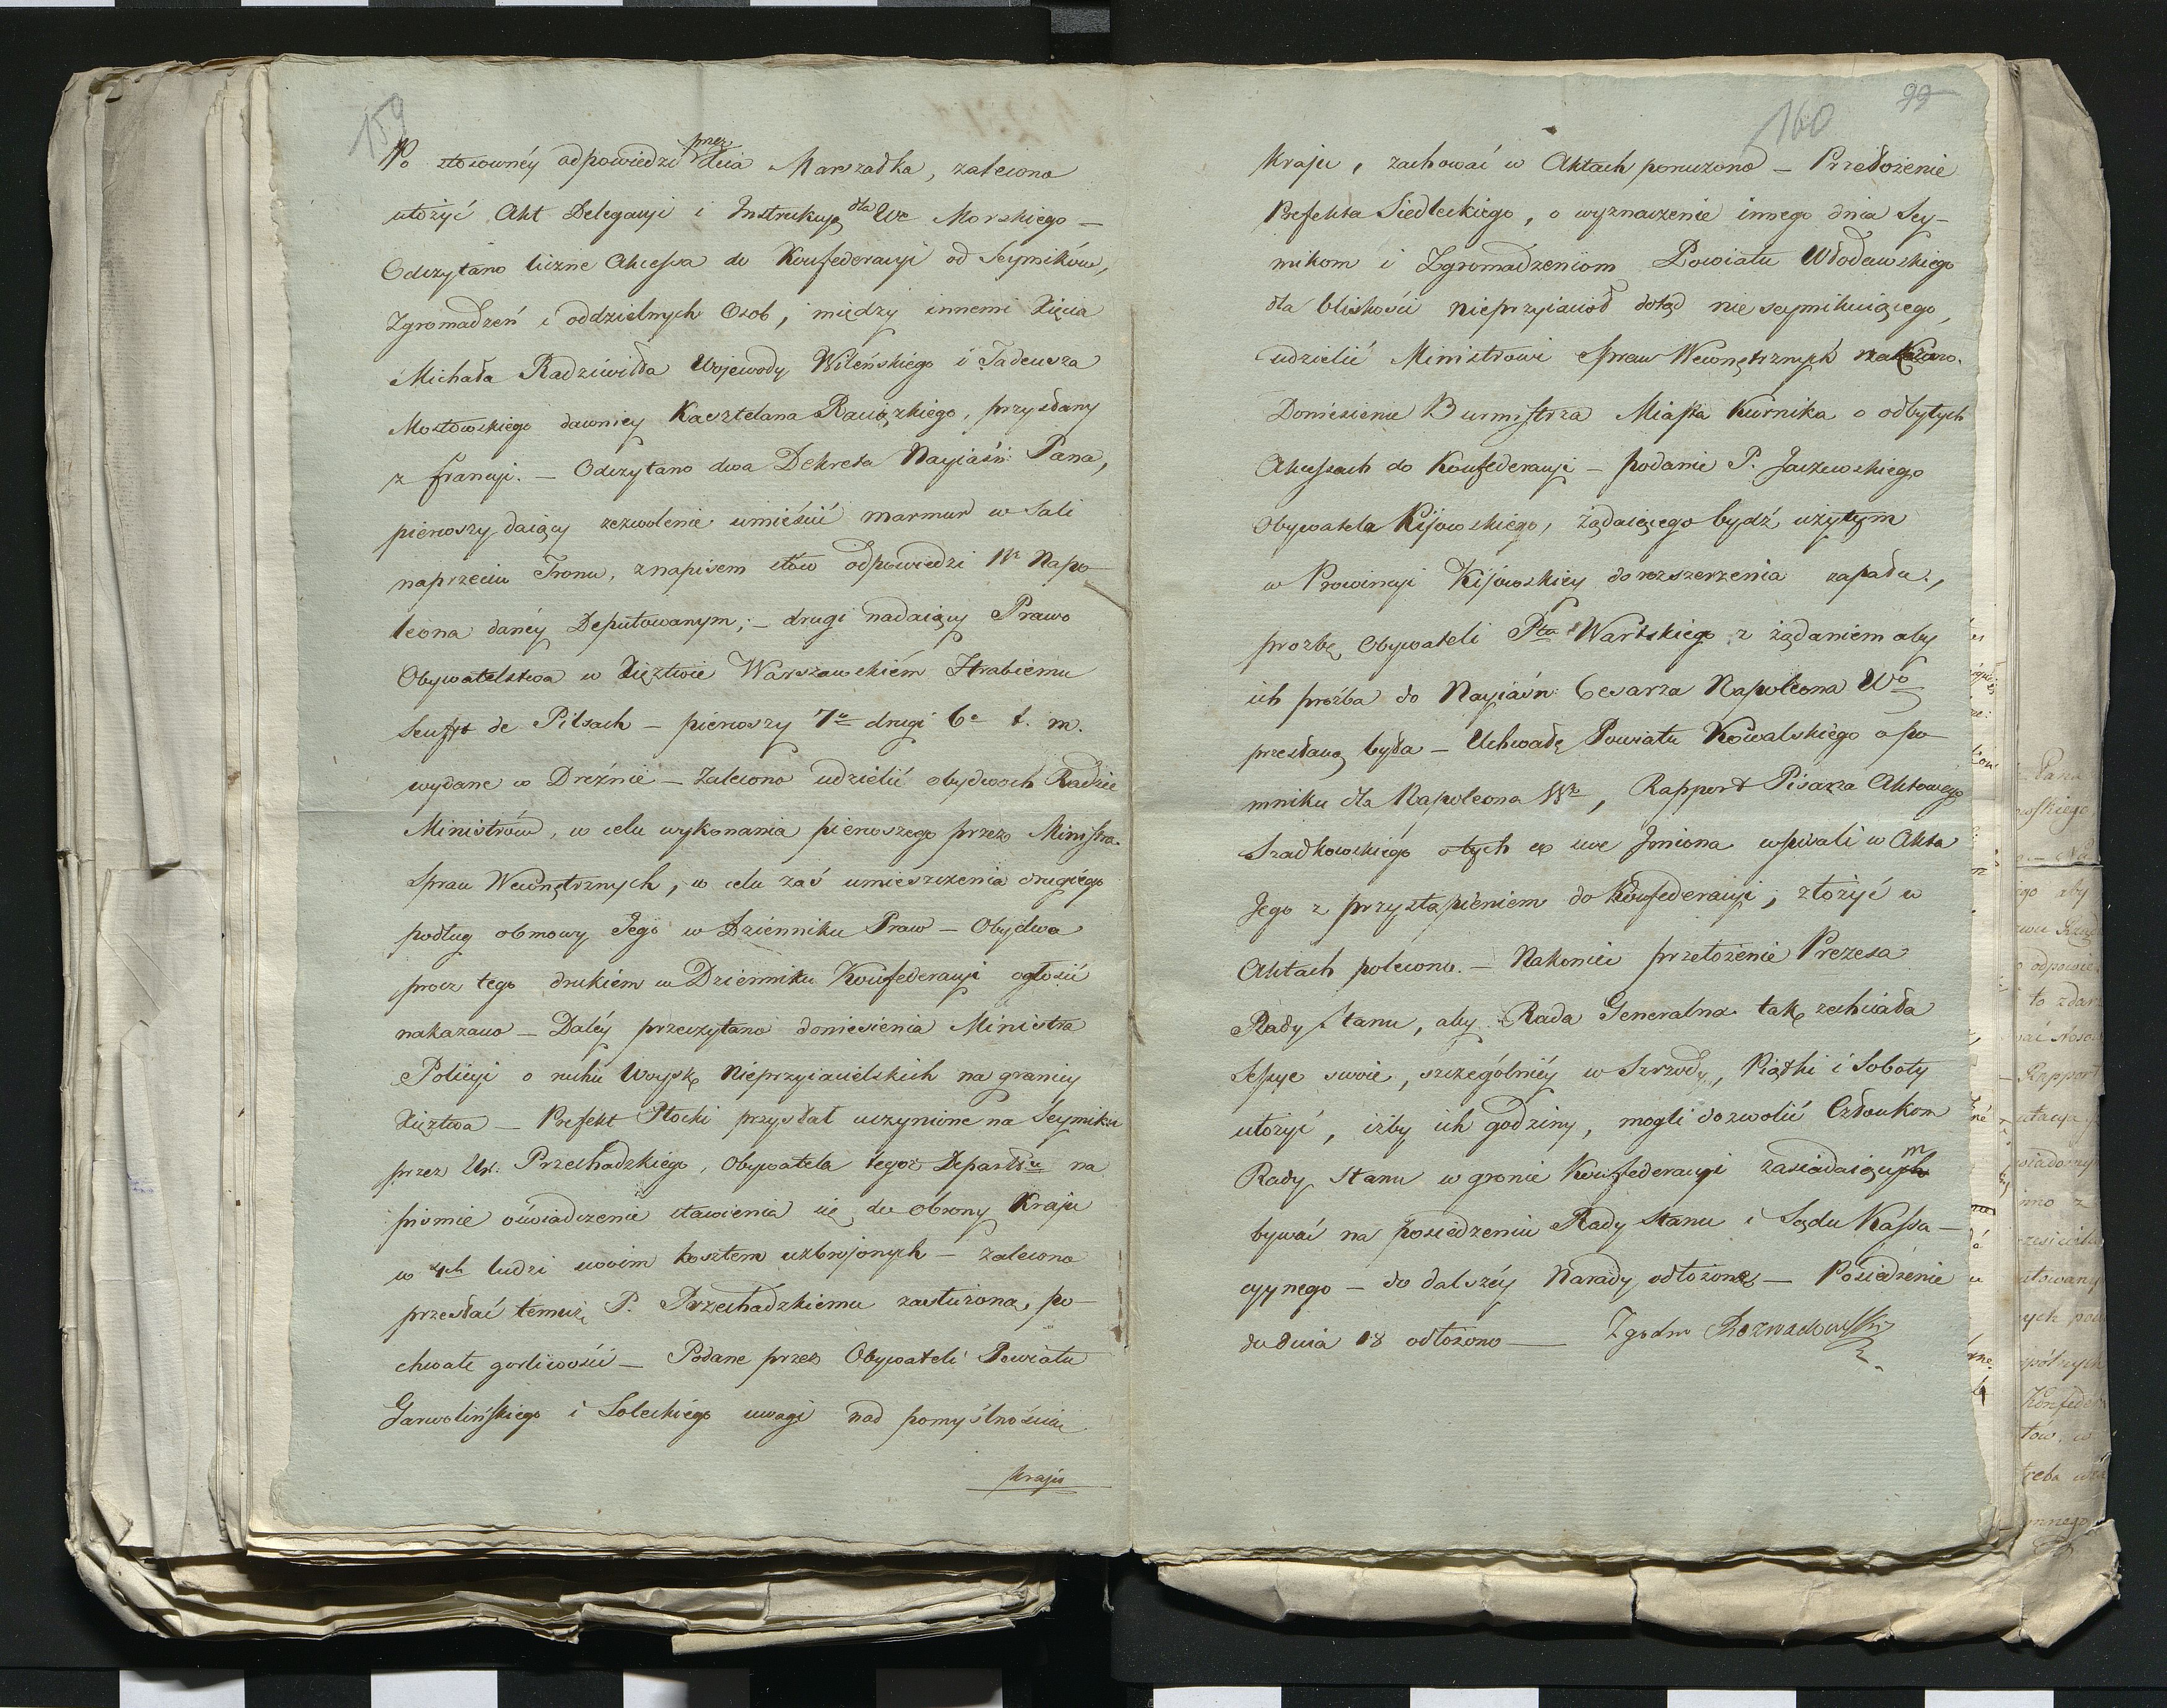 159
Po stosownéy odpowiedzi przez Xcia Marszałka, zalecono
ułożyć Akt Delegacyi i Instrukcyą dla We Morskiego —
Odczytano liczne Akcessa do Konfederacyi od Seymików,
Zgromadzeń i oddzielnych Osob, między innemi Xięcia
Michała Radziwiłła Wojewody Wileńskiego i Tadeusza
Mostowskiego dawniey Kasztelana Raciązkiego, przysłany
z francyi. — Odczytano dwa Dekreta Nayiaśń: Pana,
pierwszy daiący zezwolenie umieścić marmur w Sali
naprzeciw Tronu, z napisem słow odpowiedzi Wgo Napo-
leona danéy Deputowanym; — drugi nadaiący Prawo
Obywatelstwa w Xięztwie Warszawskiém Hrabiemu
Senfft de Pilsach — pierwszy 7o drugi 6o t. m.
wydane w Dreźnie — Zalecono udzielić obydwóch Radzie
Ministrów, w celu wykonania pierwszego przez Ministra
Spraw Wewnętrznych, w celu zaś umieszczenia drugiégo
podług osnowy Jego w Dzienniku Praw — Obydwa
procz tego drukiém w Dzienniku Konfederacyi ogłosić
nakazano — Daléy przeczytano doniesienia Ministra
Policyi o ruchu Woysk Nieprzyiacielskich na granicy
Xięztwa — Prefekt Płocki przysłał uczynione na Seymiku
przez Ur. Przechadzkiego, Obywatela tegoż Departtu na
piśmie oświadczenie stawienia się do obrony Kraju
w 4ch ludzi swoim kosztem uzbrojonych — zalecono
przesłać temuż P. Przechadzkiemu zasłużoną po-
chwałe gorliwości — Podane przez Obywateli Powiatu
Garwolińskiego i Soleckiégo uwagi nad pomyślnością
kraju
160 99
Kraju, zachować w Aktach poruczono — Przełożenie
Prefekta Siedleckiégo, o wyznaczenie innego dnia Sey-
mikom i Zgromadzeniom Powiatu Włodawskiego
dla bliskości nieprzyiaciół dotąd nie seymikuiącego,
udzielić Ministrowi Spraw Wewnętrznych nakazano.
Doniesienie Burmistrza Miasta Kurnika o odbytych
Akcessach do Konfederacyi — podanie P. Jaczewskiego
Obywatela Kijowskiégo, żądaiącego bydź użytym
w Prowincyi Kijowskiéy do rozszerzenia zapału,
prozbę Obywateli Ptu Wartskiego z żądaniem aby
ich prożba do Nayiaśn: Cesarza Napoleona Wo
przesłaną była — Uchwałę Powiatu Kowalskiégo o po-
mniku dla Napoleona Wo, Rapport Pisarza Aktowego
Szadkowskiégo o tych co swe Jmiona wpisali w Akta
Jego z przystąpieniem do Konfederacyi, złożyć w
Aktach polecono. — Nakoniec przełożenie Prezesa
Rady Stanu, aby Rada Generalna tak zechciała
Sessye swoie, szczególniéy w Szrzody, Piątki i Soboty
ułożyć, iżby ich godziny, mogli dozwolić Członkom
Rady Stanu w gronie Konfederacyi zasiadaiącym
bywać na posiedzeniu Rady Stanu i Sądu Kassa-
cyynego — do dalszéy Narady odłożone — Posiedzenie
do dnia 18 odłożono — Zgodno Rozwadowski